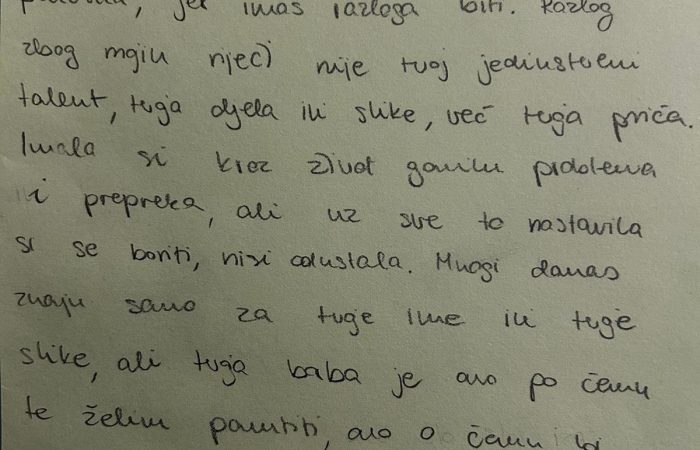 jer imaš razloga biti. Razlog
zbog mgiu njeci nije tvoj jedinstveni
talent, tvoja djela ili slike, već tvoja priča.
Imala si kroz život gomilu problema
i prepreka, ali uz sve to nastavila
si se boriti, nisi odustala. Mnogi danas
znaju samo za tvoje ime ili tvoje
slike, ali tvoja borba je ono po čemu
te želim pamtiti, ono o čemu bi